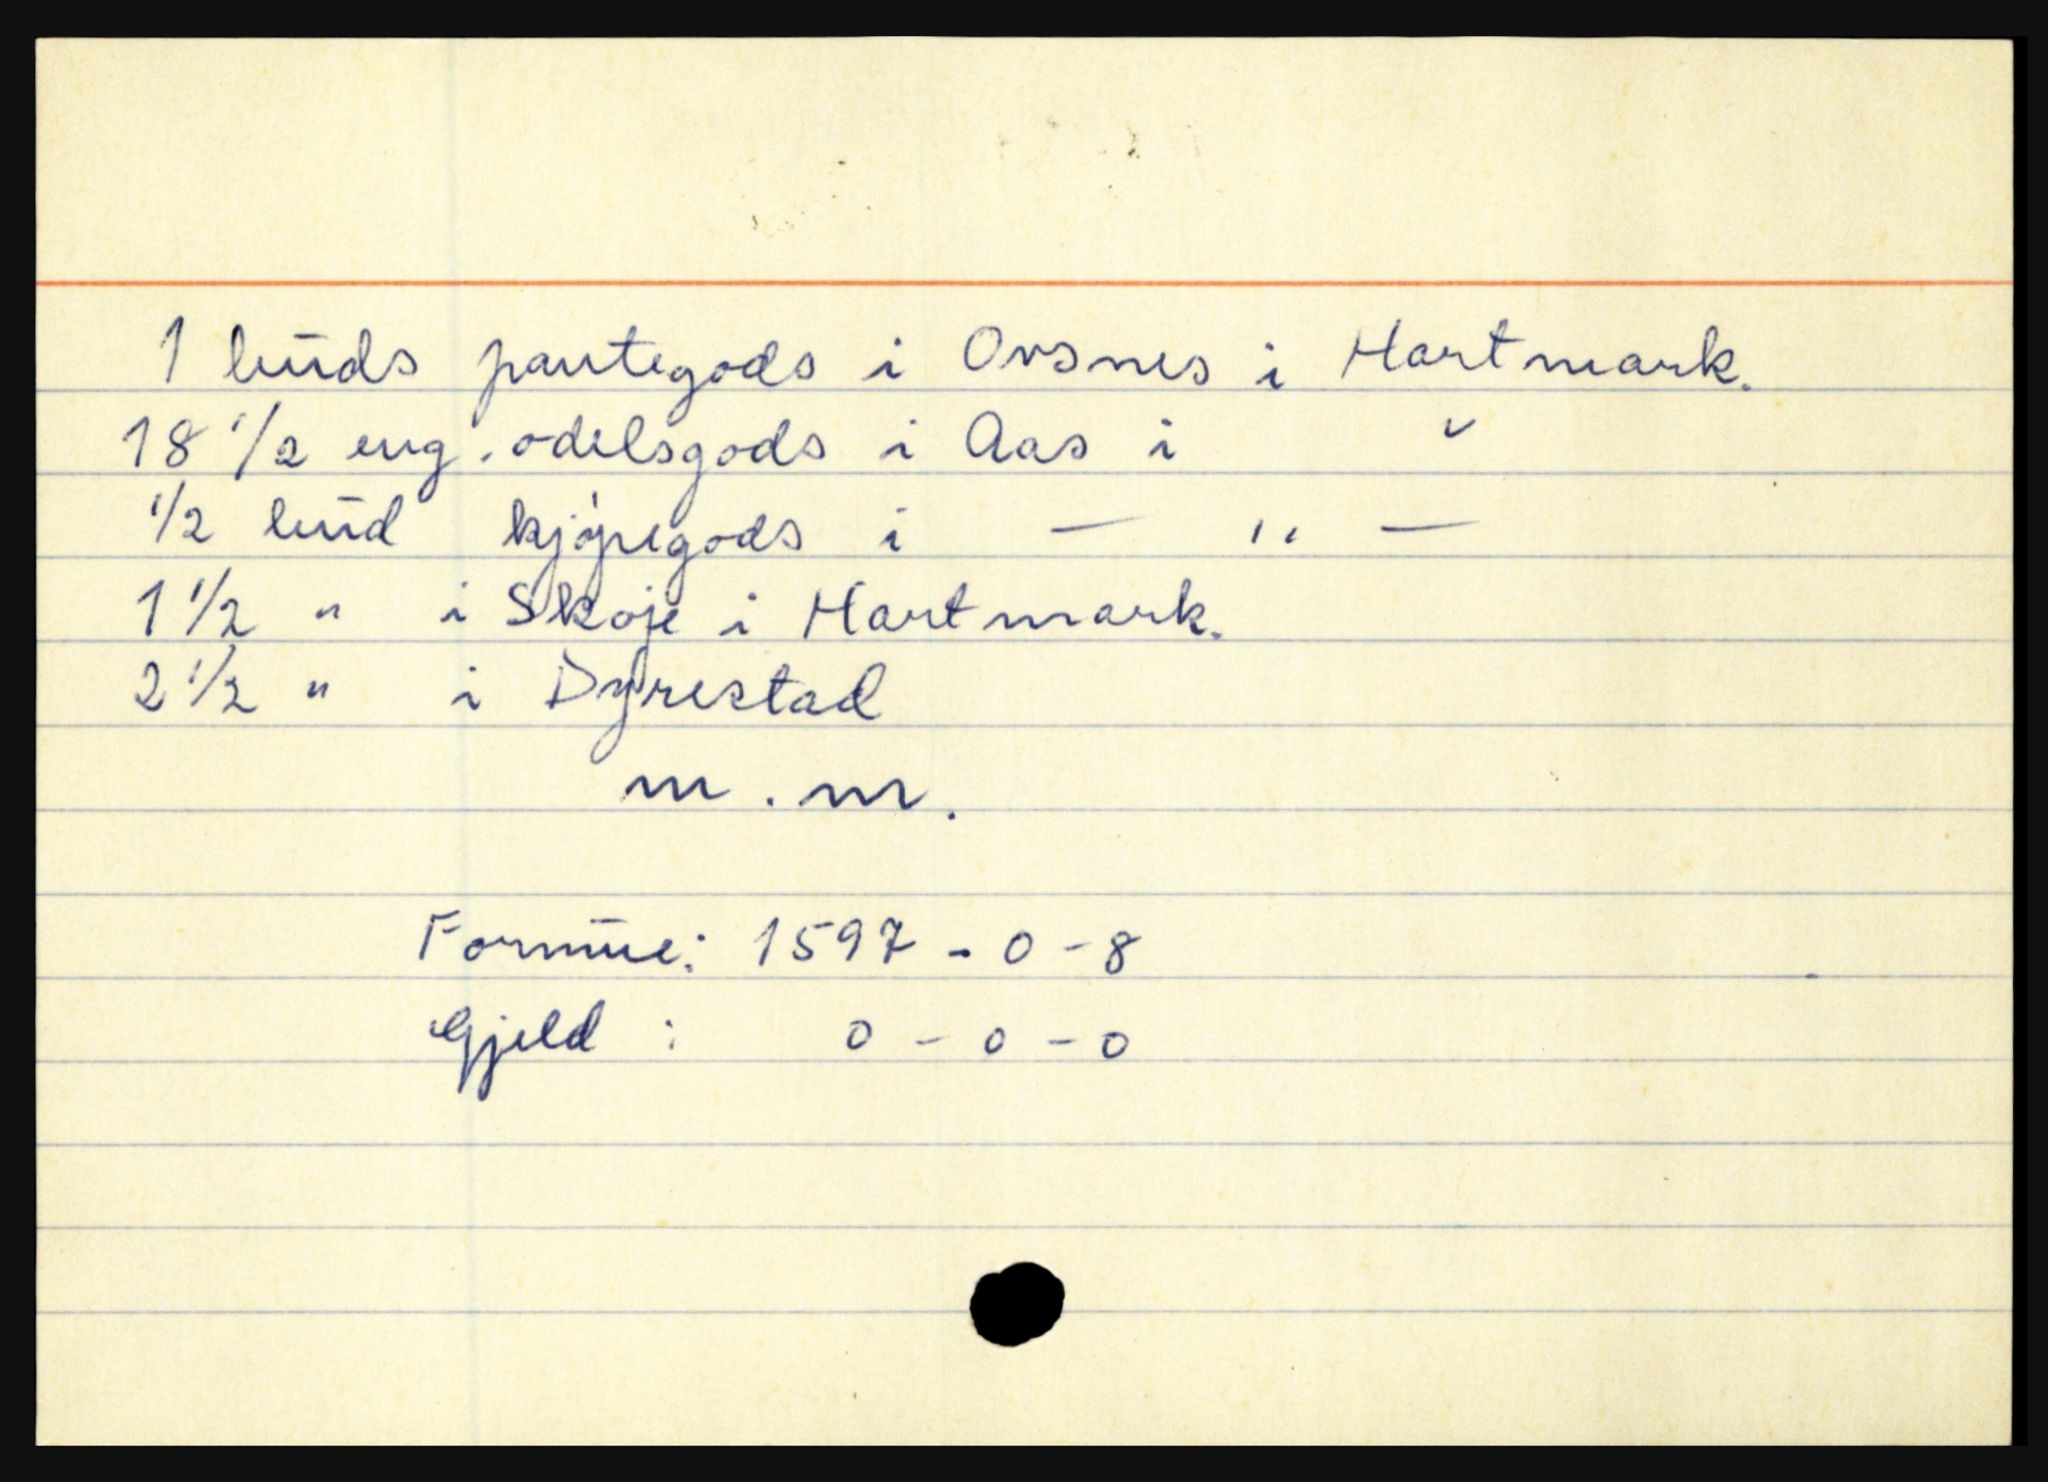 1 huds pantegods i Ovsnes i Hartmark.
18 1/2 eng. odelsgods i Aas i "
1/2 hud kjøpegods i — " —
1 1/2 " i Skoje i Hartmark.
2 1/2 " i Dyrestad
m.m.
Formue: 1597 - 0 - 8
Gjeld : 0 - 0 - 0